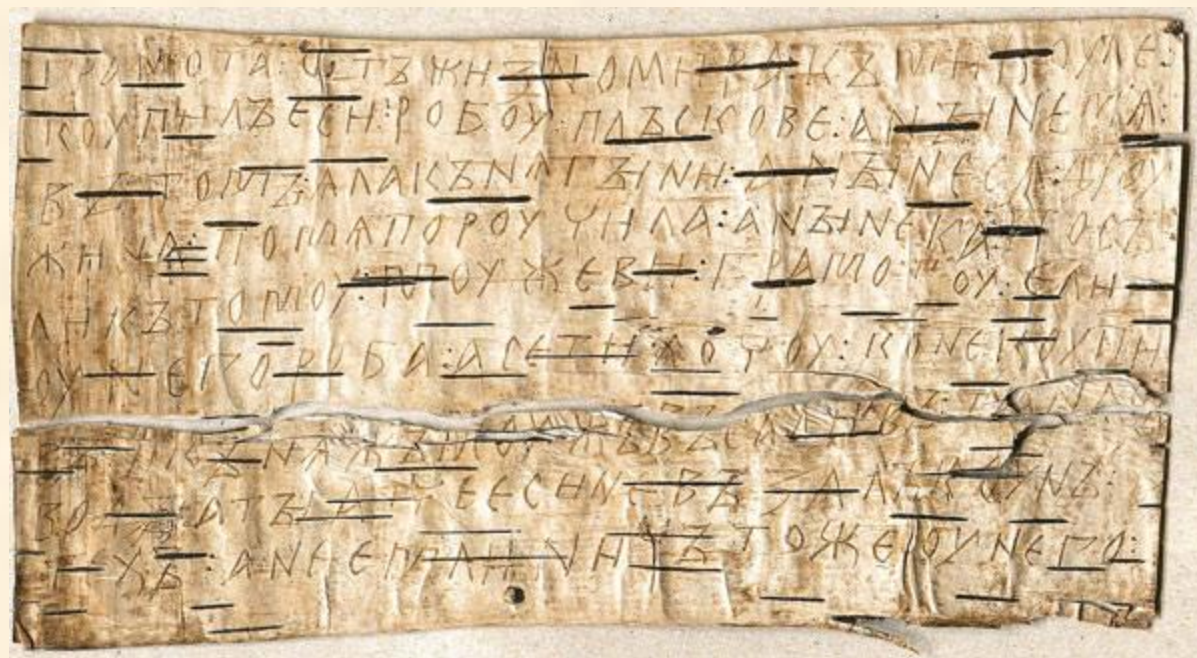 грамота : ѡтъ жизномира : къ микоуле :
коупилъ еси : робоу : плъскове : а нъіне мѧ :
въ томъ : ѧла кънѧгъіни : а нъіне сѧ дроу
жина : по мѧ пороучила : а нъіне ка : посъ
ли къ томоу : моужеви : грамотоу : ели
оу него роба : а се ти хочоу : коне коупи
въ : и кънѧжъ моужъ въсадивъ : та на съ
водъі : а тъі атче еси не възалъ коунъ :
техъ : а не емли : ничъто же оу него :